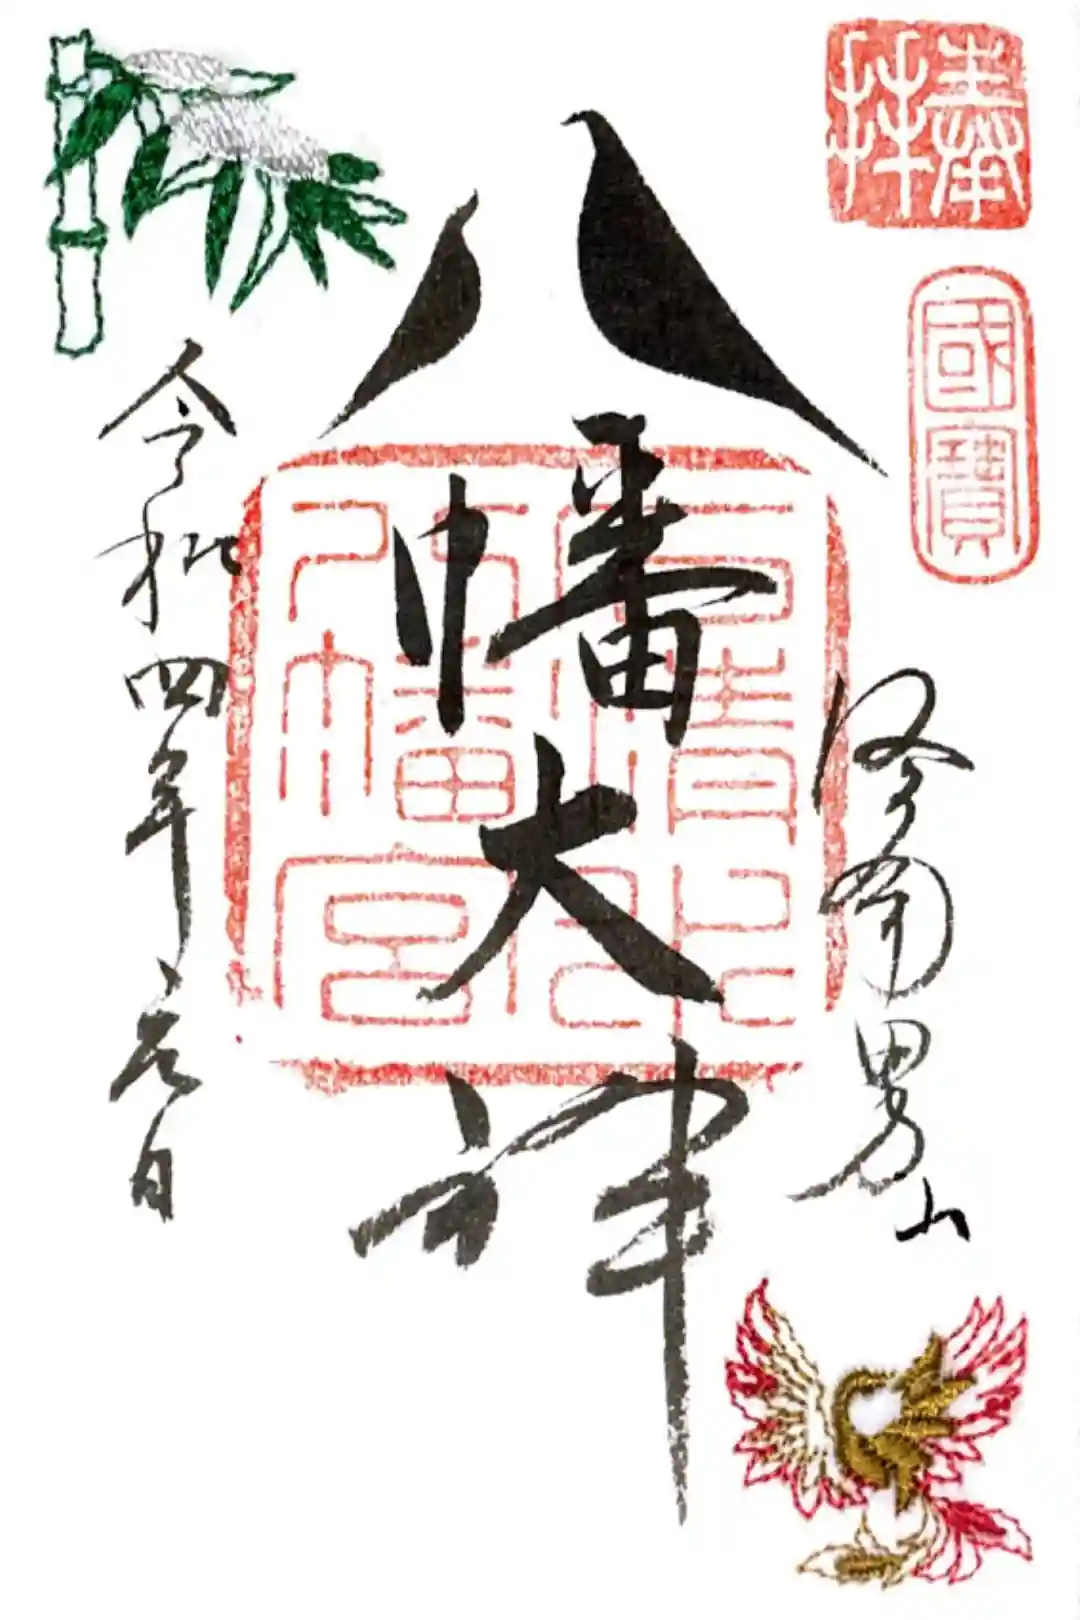 奉拝
國寶
洛南男山
八幡大神
石清水八幡宮
令和四年元日